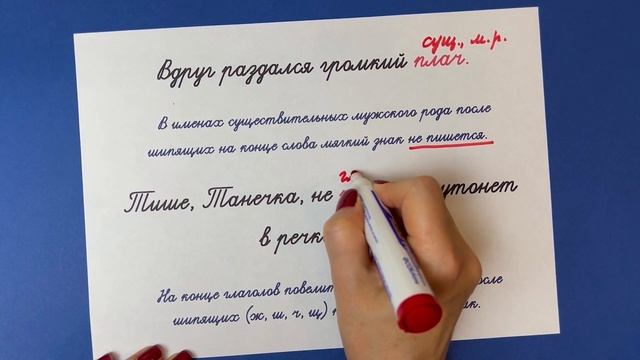 сущ., м.р.
Вдруг раздался громкий плач.
В именах существительных мужского рода после
шипящих на конце слова мягкий знак не пишется.
Тише, Танечка, не утонет
в речк
На конце глаголов повелит
шипящих (ж, ш, ч, щ)